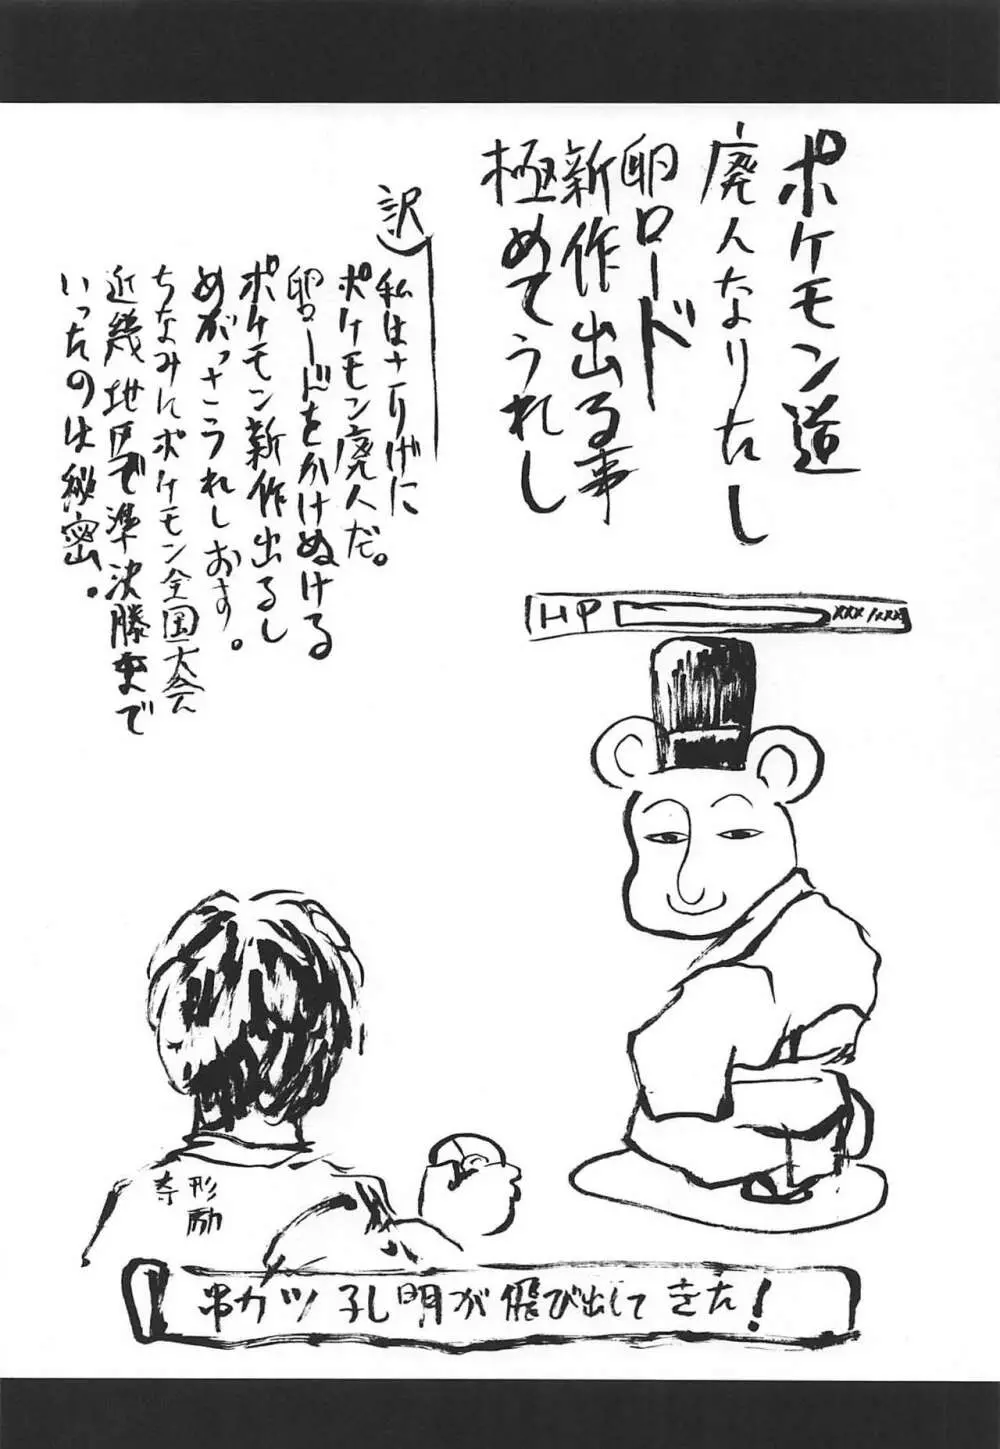 ポケモン道
廃人なりたし
卵ロード
新作出る事
極めてうれし
訳
私はさりげに
ポケモン廃人だ。
卵ロードをかけぬける
ポケモン新作出るし
めがっさうれしおす。
ちなみにポケモン全国大会
近幾地区で準決勝まで
いったのは秘密。
HP xxx/xxx
形励
串カツ孔明が飛び出してきた!